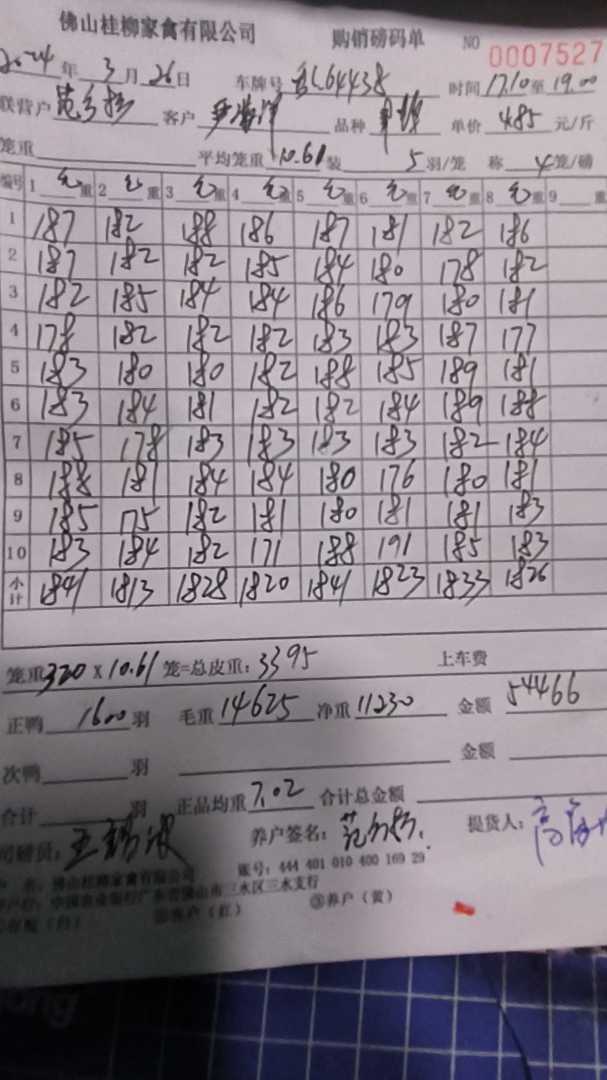 佛山桂柳家禽有限公司 购销磅码单 NO 0007527
2024年3月26日 车牌号 64438 时间 17.10至19.00
联营户 客户 品种 单价 4.85 元/斤
笼重 平均笼重 10.61 装 5 羽/笼 称 4 笼/磅
编号 1 重 2 重 3 重 4 重 5 重 6 重 7 重 8 重 9 重
1 187 182 188 186 187 181 182 186
2 187 182 182 185 184 180 178 182
3 182 185 184 184 186 179 180 181
4 178 182 182 182 183 183 187 177
5 183 180 180 182 188 185 189 181
6 183 184 181 182 182 184 189 188
7 185 178 183 183 183 183 182 184
8 188 181 184 184 180 176 180 181
9 185 175 182 181 180 181 181 183
10 183 184 182 171 188 191 185 183
小计 1841 1813 1828 1820 1841 1823 1833 1826
笼重 320 x 10.61 笼=总皮重: 3395 上车费
正鸭 1600 羽 毛重 14625 净重 11230 金额 54466
次鸭 羽 金额
合计 羽 正品均重 7.02 合计总金额
司磅员: 养户签名: 提货人:
名: 佛山桂柳家禽有限公司 账号: 444 401 010 400 169 29
中国农业银行广东省佛山市三水区三水支行
②客户(红) ③养户(黄)